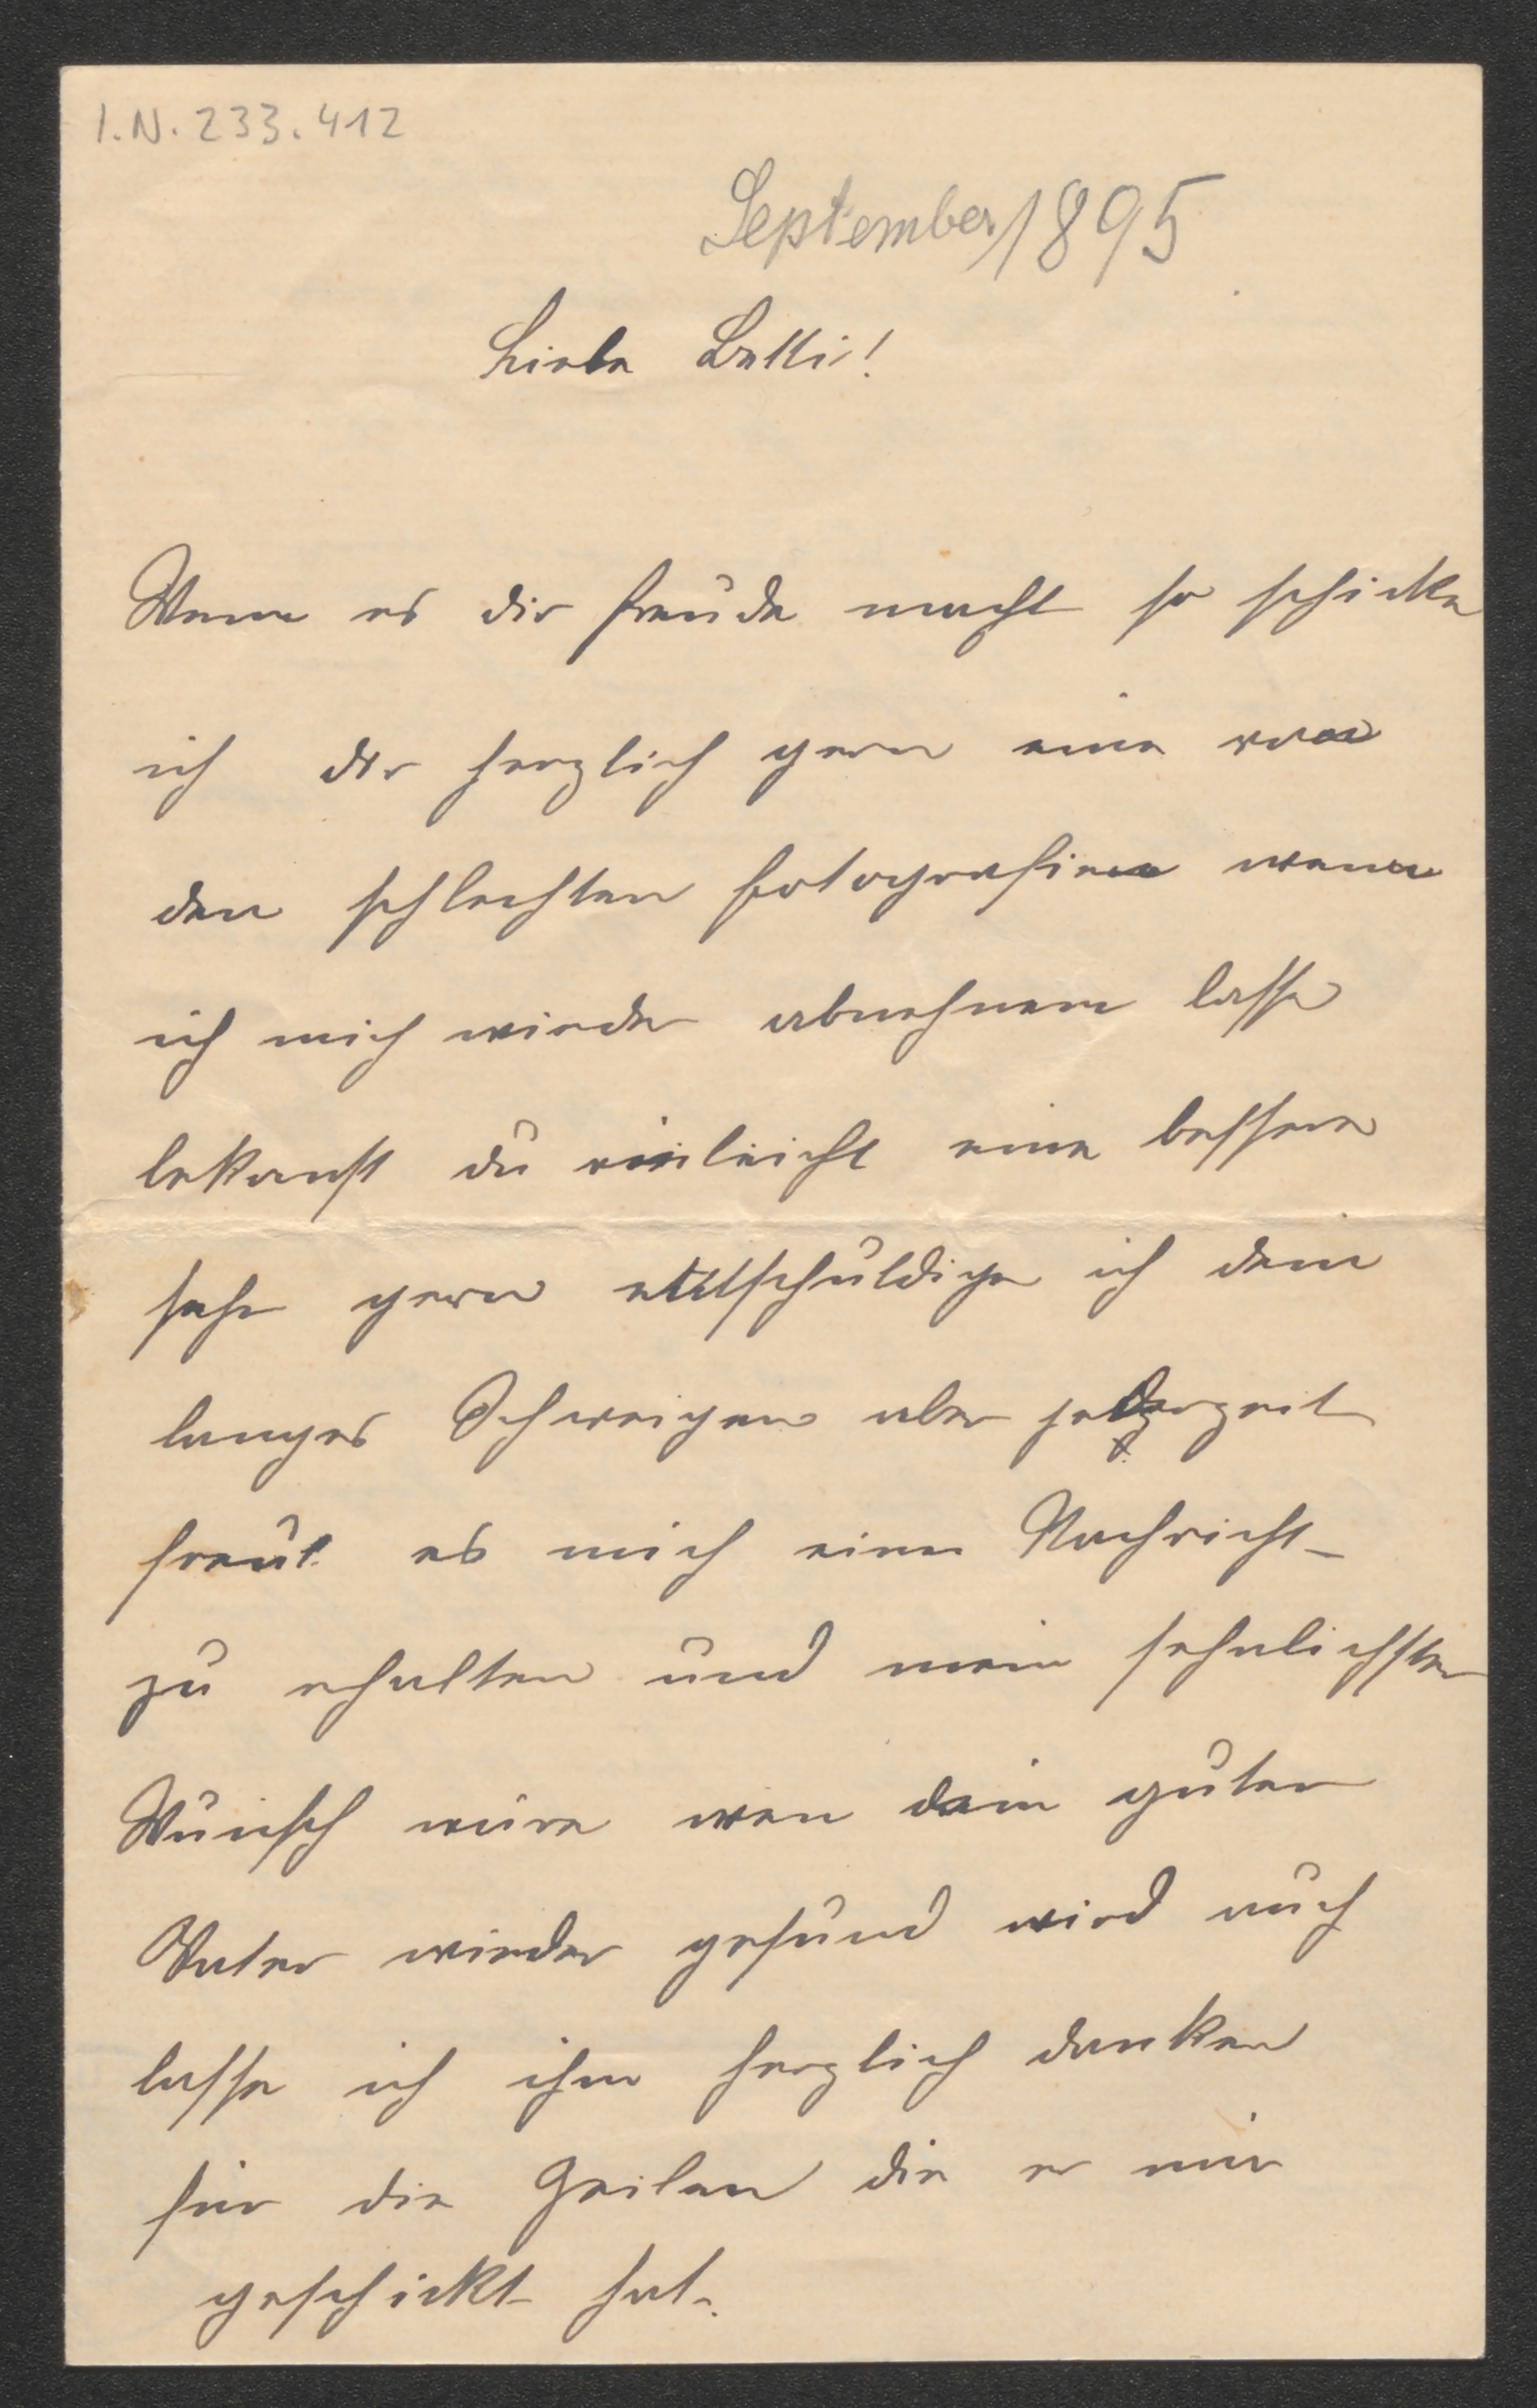 I.N. 233.412
September 1895
Liebe Betti!
Wenn es dir freude macht so schicke
ich dir herzlich gern eine von
den schlechten fotografien wenn
ich mich wieder abnehmen lasse
bekomst du vieileicht eine bessere
sehr gern entschuldige ich dein
langes Schweigen aber jederzeit
freut es mich eine Nachricht
zu erhalten und mein sehnlichster
Wunsch wäre wen dein guter
Vater wieder gesund wird auch
lasse ich ihm herzlich danken
für die Zeilen die er mir
geschickt hat.